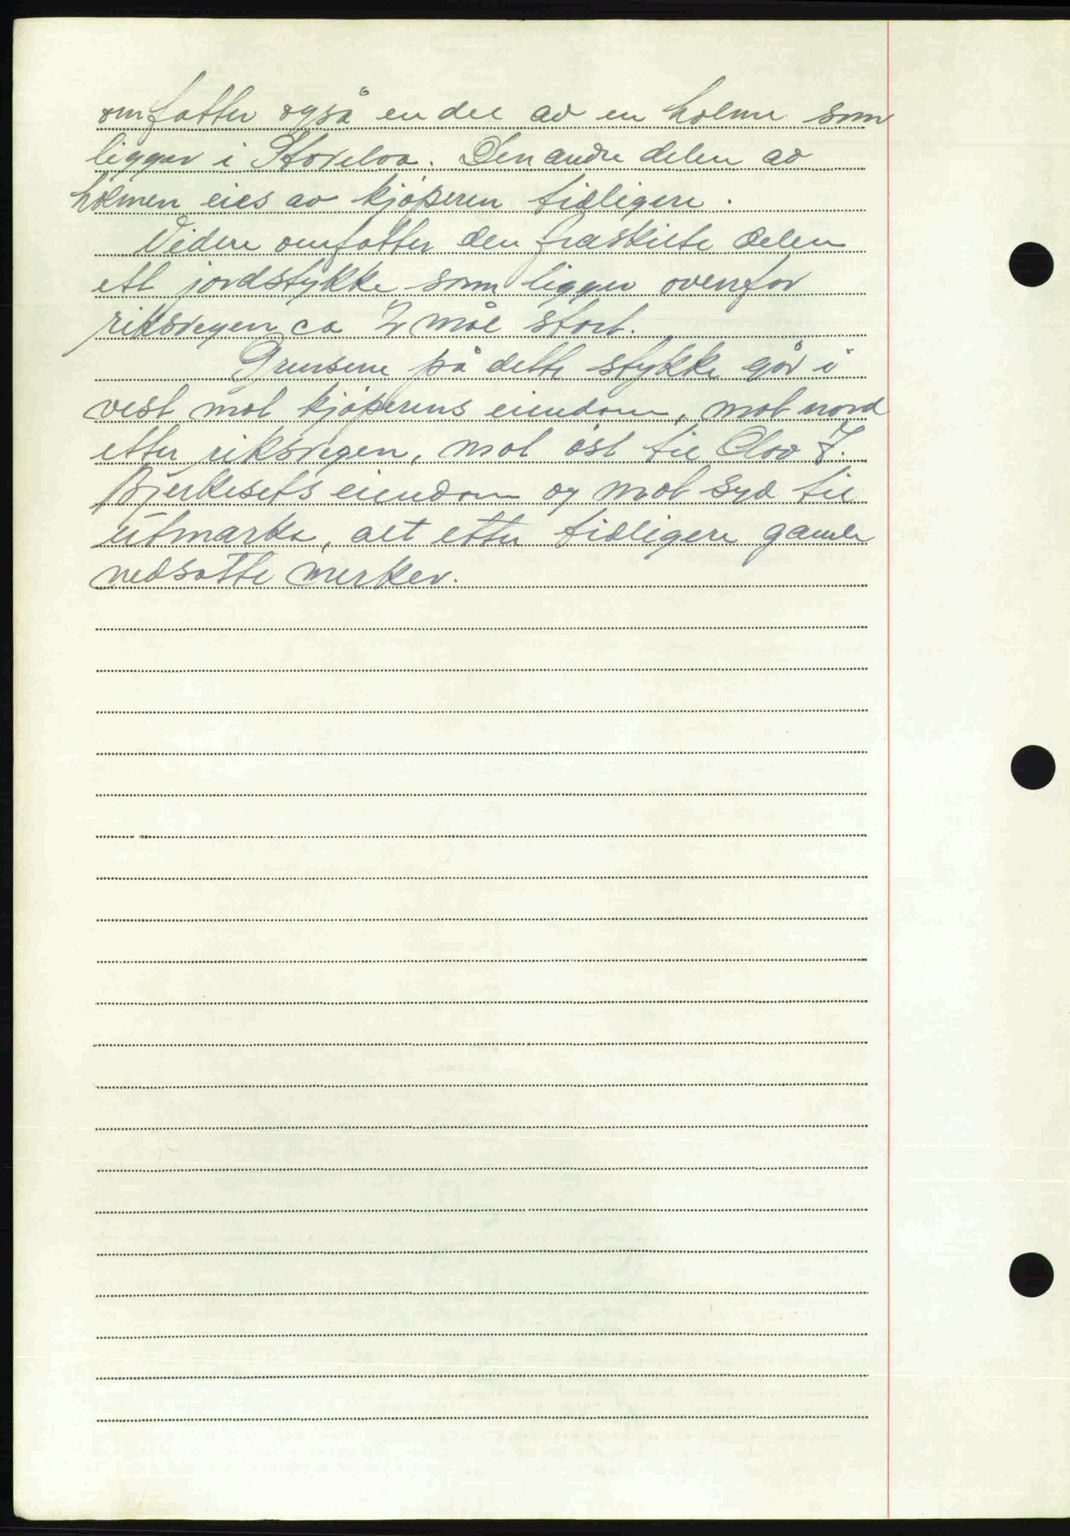 omfatter også en del av en holme som
ligger i Storelva. Den andre delen av
holmen eies av kjøperen tidligere.
Videre omfatter den fraskilte delen
ett jordstykke som ligger ovenfor
riksvegen ca 2 mål stort.
Grensene på dette stykke går i
vest mot kjøperens eiendom, mot nord
etter riksvegen, mot øst til Olav J.
Bjerkesets eiendom og mot syd til
utmarka, alt etter tidligere gamle
nedsatte merker.